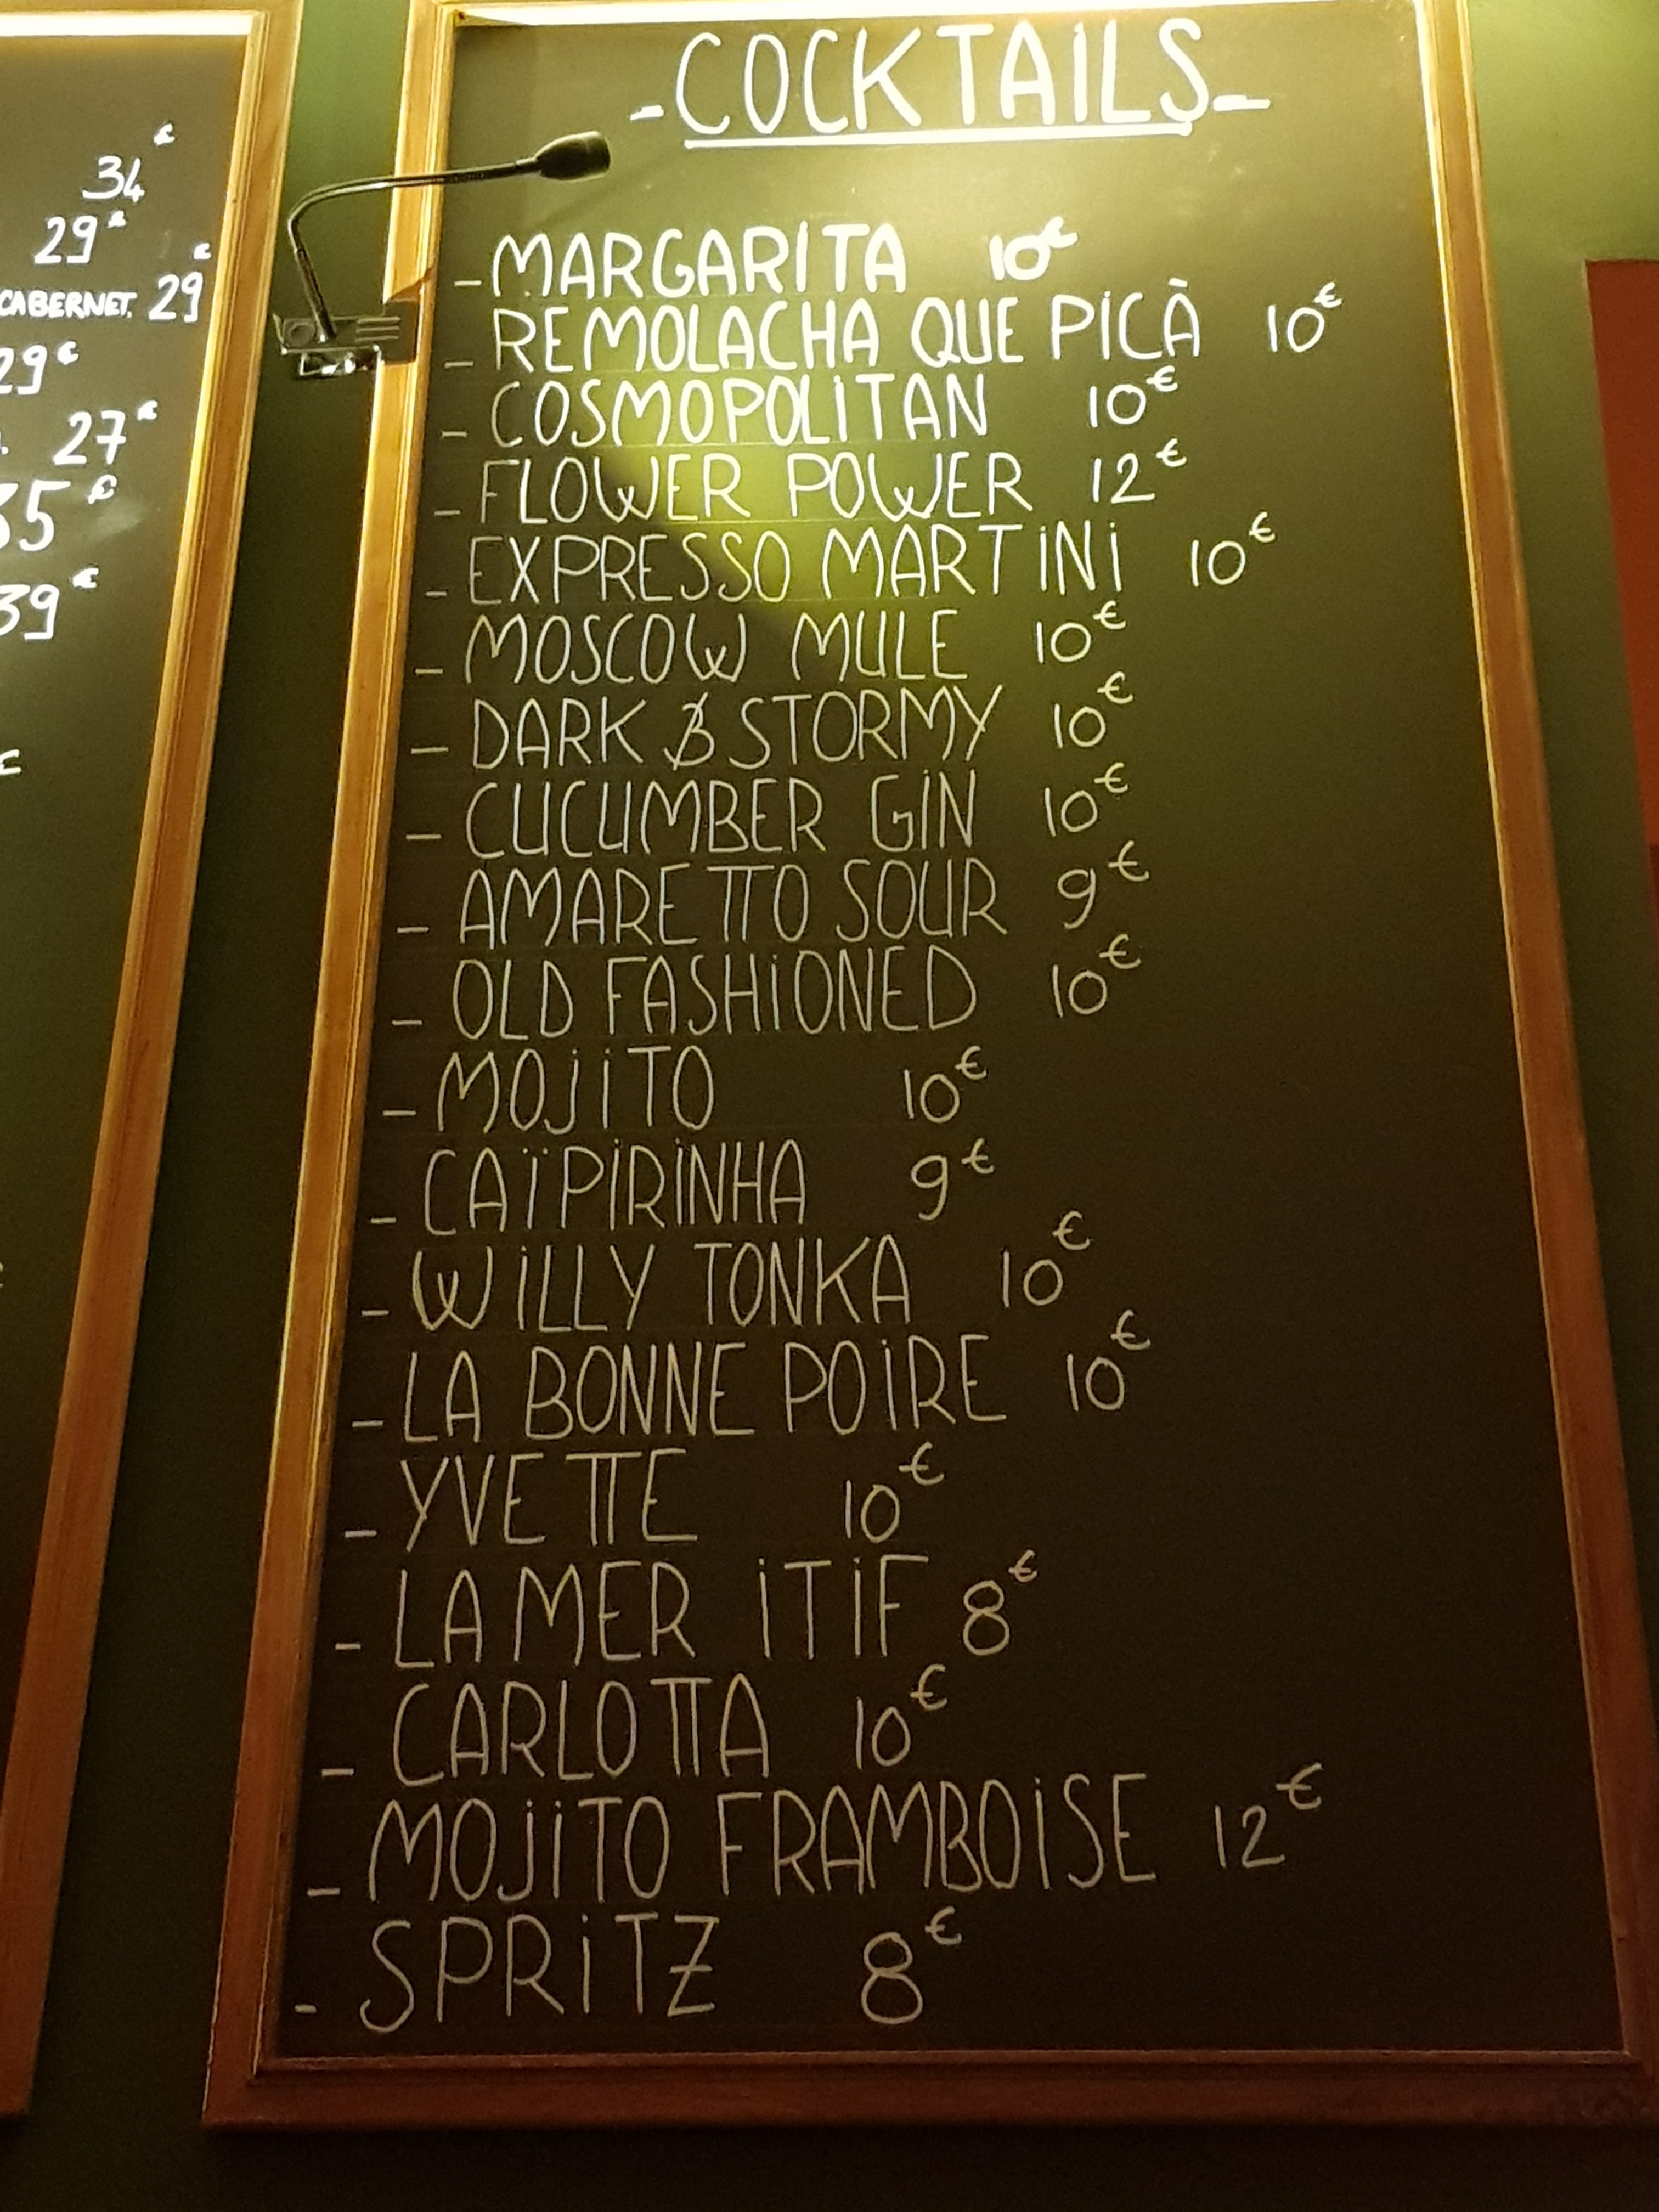 34€
29€
CABERNET. 29€
29€
27€
35€
39€
€
- COCKTAILS -
- MARGARITA 10€
- REMOLACHA QUE PICÀ 10€
- COSMOPOLITAN 10€
- FLOWER POWER 12€
- EXPRESSO MARTINI 10€
- MOSCOW MULE 10€
- DARK & STORMY 10€
- CUCUMBER GIN 10€
- AMARETTO SOUR 9€
- OLD FASHIONED 10€
- MOJITO 10€
- CAÏPIRINHA 9€
- WILLY TONKA 10€
- LA BONNE POIRE 10€
- YVETTE 10€
- LA MER ITIF 8€
- CARLOTTA 10€
- MOJITO FRAMBOISE 12€
- SPRITZ 8€